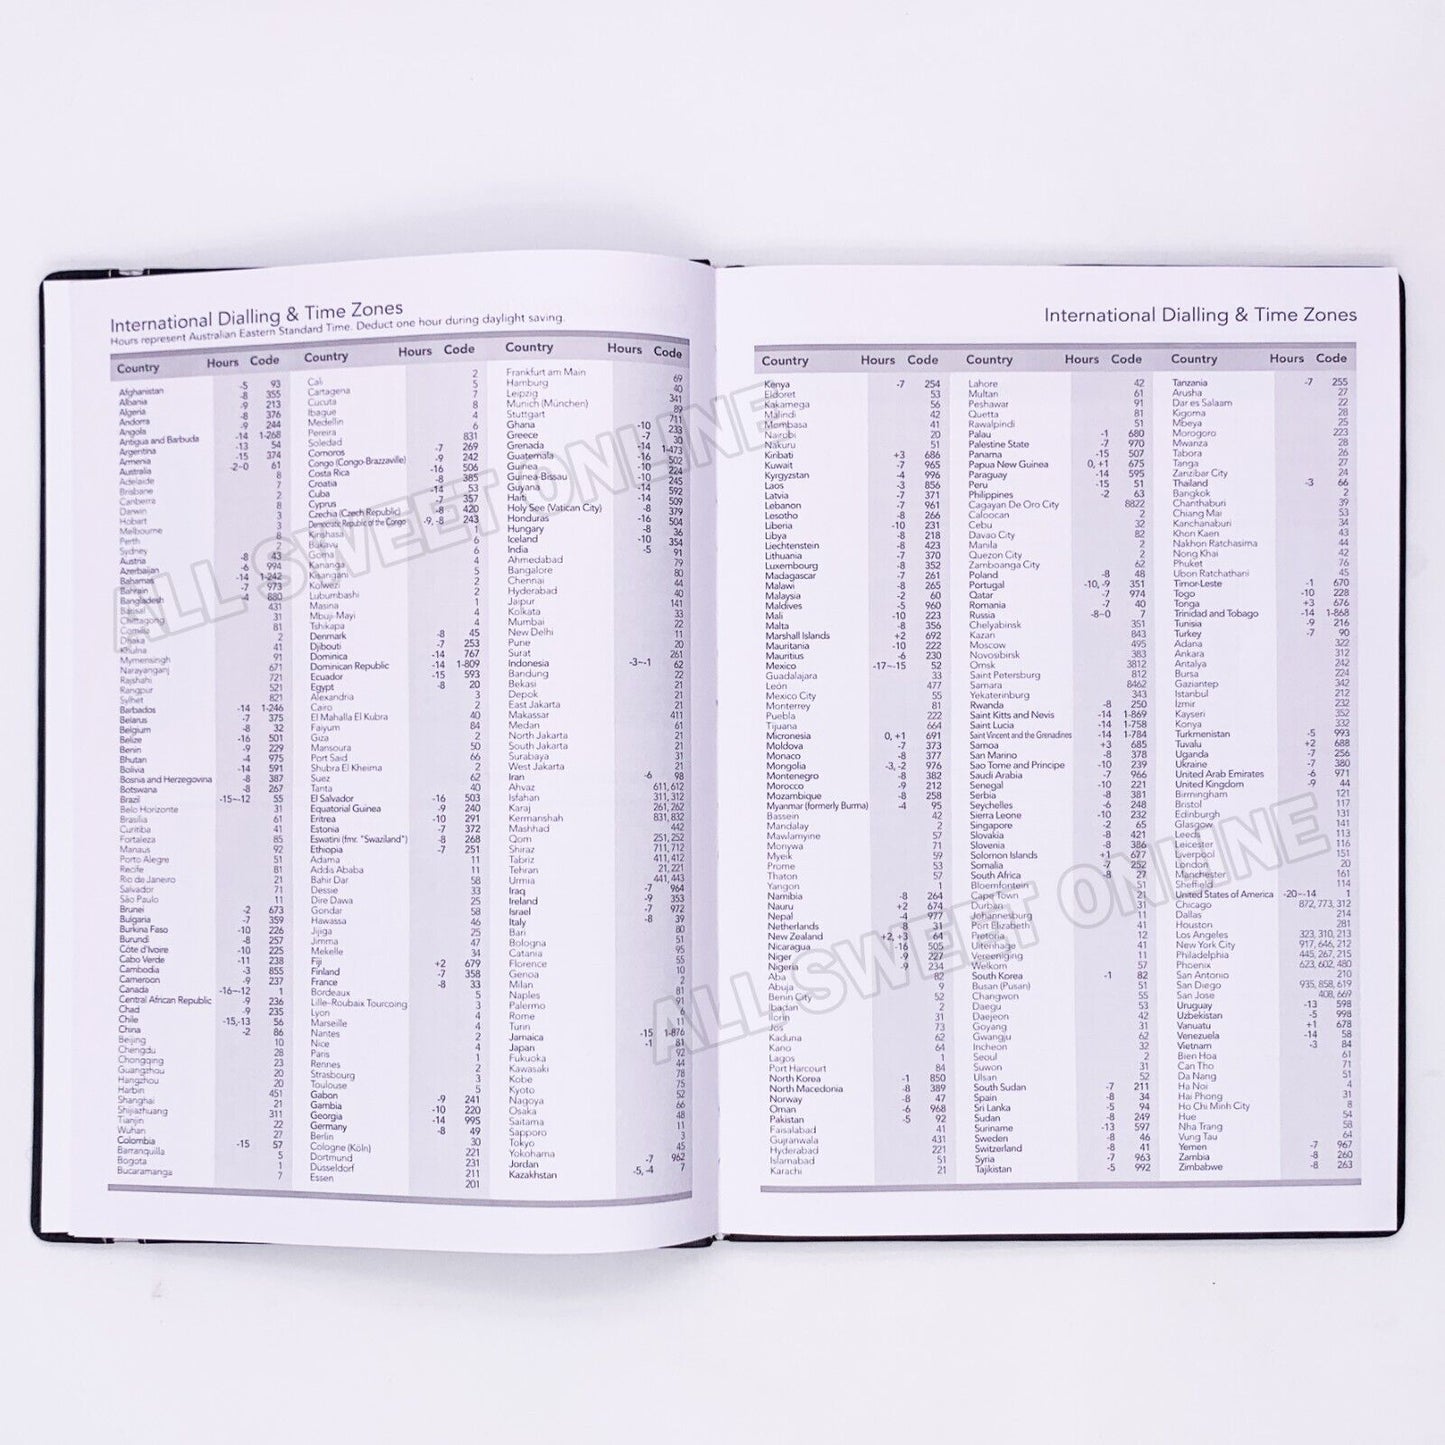 International Dialling & Time Zones
Hours represent Australian Eastern Standard Time. Deduct one hour during daylight saving.
Country Hours Code
Afghanistan -5 93
Albania -8 355
Algeria -9 213
Andorra -8 376
Angola -9 244
Antigua and Barbuda -14 1-268
Argentina -13 54
Armenia -15 374
Australia -2~0 61
Adelaide 8
Brisbane 7
Canberra 2
Darwin 8
Hobart 3
Melbourne 3
Perth 8
Sydney 2
Austria -8 43
Azerbaijan -6 994
Bahamas -14 1-242
Bahrain -7 973
Bangladesh -4 880
Barisal 431
Chittagong 31
Comilla 81
Dhaka 2
Khulna 41
Mymensingh 91
Narayanganj 671
Rajshahi 721
Rangpur 521
Sylhet 821
Barbados -14 1-246
Belarus -7 375
Belgium -8 32
Belize -16 501
Benin -9 229
Bhutan -4 975
Bolivia -14 591
Bosnia and Herzegovina -8 387
Botswana -8 267
Brazil -15~-12 55
Belo Horizonte 31
Brasilia 61
Curitiba 41
Fortaleza 85
Manaus 92
Porto Alegre 51
Recife 81
Rio de Janeiro 21
Salvador 71
São Paulo 11
Brunei -2 673
Bulgaria -7 359
Burkina Faso -10 226
Burundi -8 257
Côte d'Ivoire -10 225
Cabo Verde -11 238
Cambodia -3 855
Cameroon -9 237
Canada -16~-12 1
Central African Republic -9 236
Chad -9 235
Chile -15,-13 56
China -2 86
Beijing 10
Chengdu 28
Chongqing 23
Guangzhou 20
Hangzhou 20
Harbin 451
Shanghai 21
Shijiazhuang 311
Tianjin 22
Wuhan 27
Colombia -15 57
Barranquilla 5
Bogota 1
Bucaramanga 7
Country Hours Code
Cali 2
Cartagena 5
Cucuta 7
Ibague 8
Medellin 4
Pereira 6
Soledad
Comoros 831
Congo (Congo-Brazzaville) -7 269
Costa Rica -9 242
Croatia -16 506
Cuba -8 385
Cyprus -14 53
Czechia (Czech Republic) -7 357
Democratic Republic of the Congo -8 420
Kinshasa -9, -8 243
Bukavu 1
Goma 6
Kananga 6
Kisangani 4
Kolwezi 5
Lubumbashi 2
Masina 2
Mbuji-Mayi 1
Tshikapa 4
Denmark -8 45
Djibouti -7 253
Dominica -14 767
Dominican Republic -14 1-809
Ecuador -15 593
Egypt -8 20
Alexandria 3
Cairo 2
El Mahalla El Kubra 40
Faiyum 84
Giza 2
Mansoura 50
Port Said 66
Shubra El Kheima 2
Suez 62
Tanta 40
El Salvador -16 503
Equatorial Guinea -9 240
Eritrea -10 291
Estonia -7 372
Eswatini (fmr. "Swaziland") -8 268
Ethiopia -7 251
Adama 11
Addis Ababa 11
Bahir Dar 58
Dessie 33
Dire Dawa 25
Gondar 58
Hawassa 46
Jijiga 25
Jimma 47
Mekelle 34
Fiji +2 679
Finland -7 358
France -8 33
Bordeaux 5
Lille-Roubaix Tourcoing 3
Lyon 4
Marseille 4
Nantes 2
Nice 4
Paris 1
Rennes 2
Strasbourg 3
Toulouse 5
Gabon -9 241
Gambia -10 220
Georgia -14 995
Germany -8 49
Berlin 30
Cologne (Köln) 221
Dortmund 231
Düsseldorf 211
Essen 201
Country Hours Code
Frankfurt am Main 69
Hamburg 40
Leipzig 341
Munich (München) 89
Stuttgart 711
Ghana -10 233
Greece -7 30
Grenada -14 1-473
Guatemala -16 502
Guinea -10 224
Guinea-Bissau -10 245
Guyana -14 592
Haiti -14 509
Holy See (Vatican City) -8 379
Honduras -16 504
Hungary -8 36
Iceland -10 354
India -5 91
Ahmedabad 79
Bangalore 80
Chennai 44
Hyderabad 40
Jaipur 141
Kolkata 33
Mumbai 22
New Delhi 11
Pune 20
Surat 261
Indonesia -3~-1 62
Bandung 22
Bekasi 21
Depok 21
East Jakarta 21
Makassar 411
Medan 61
North Jakarta 21
South Jakarta 21
Surabaya 31
West Jakarta 21
Iran -6 98
Ahvaz 611, 612
Isfahan 311, 312
Karaj 261, 262
Kermanshah 831, 832
Mashhad 442
Qom 251, 252
Shiraz 711, 712
Tabriz 411, 412
Tehran 21, 221
Urmia 441, 443
Iraq -7 964
Ireland -9 353
Israel -7 972
Italy -8 39
Bari 80
Bologna 51
Catania 95
Florence 55
Genoa 10
Milan 2
Naples 81
Palermo 91
Rome 6
Turin 11
Jamaica -15 1-876
Japan -1 81
Fukuoka 92
Kawasaki 44
Kobe 78
Kyoto 75
Nagoya 52
Osaka 66
Saitama 48
Sapporo 11
Tokyo 3
Yokohama 45
Jordan -7 962
Kazakhstan -5, -4 7
International Dialling & Time Zones
Country Hours Code
Kenya -7 254
Eldoret 53
Kakamega 56
Malindi 42
Mombasa 41
Nairobi 20
Nakuru 51
Kiribati +3 686
Kuwait -7 965
Kyrgyzstan -4 996
Laos -3 856
Latvia -7 371
Lebanon -7 961
Lesotho -8 266
Liberia -10 231
Libya -8 218
Liechtenstein -8 423
Lithuania -7 370
Luxembourg -8 352
Madagascar -7 261
Malawi -8 265
Malaysia -2 60
Maldives -5 960
Mali -10 223
Malta -8 356
Marshall Islands +2 692
Mauritania -10 222
Mauritius -6 230
Mexico -17~-15 52
Guadalajara 33
León 477
Mexico City 55
Monterrey 81
Puebla 222
Tijuana 664
Micronesia 0, +1 691
Moldova -7 373
Monaco -8 377
Mongolia -3, -2 976
Montenegro -8 382
Morocco -9 212
Mozambique -8 258
Myanmar (formerly Burma) -4 95
Bassein 42
Mandalay 2
Mawlamyine 57
Monywa 71
Myeik 59
Prome 53
Thaton 57
Yangon 1
Namibia -8 264
Nauru +2 674
Nepal -4 977
Netherlands -8 31
New Zealand +2, +3 64
Nicaragua -16 505
Niger -9 227
Nigeria -9 234
Aba 82
Abuja 9
Benin City 52
Ibadan 2
Ilorin 31
Jos 73
Kaduna 62
Kano 64
Lagos 1
Port Harcourt 84
North Korea -1 850
North Macedonia -8 389
Norway -8 47
Oman -6 968
Pakistan -5 92
Faisalabad 41
Gujranwala 431
Hyderabad 221
Islamabad 51
Karachi 21
Country Hours Code
Lahore 42
Multan 61
Peshawar 91
Quetta 81
Rawalpindi 51
Palau -1 680
Palestine State -7 970
Panama -15 507
Papua New Guinea 0, +1 675
Paraguay -14 595
Peru -15 51
Philippines -2 63
Cagayan De Oro City 8822
Caloocan 2
Cebu 32
Davao City 82
Manila 2
Quezon City 2
Zamboanga City 62
Poland -8 48
Portugal -10, -9 351
Qatar -7 974
Romania -7 40
Russia -8~0 7
Chelyabinsk 351
Kazan 843
Moscow 495
Novosibirsk 383
Omsk 3812
Saint Petersburg 812
Samara 8462
Yekaterinburg 343
Rwanda -8 250
Saint Kitts and Nevis -14 1-869
Saint Lucia -14 1-758
Saint Vincent and the Grenadines -14 1-784
Samoa +3 685
San Marino -8 378
Sao Tome and Principe -10 239
Saudi Arabia -7 966
Senegal -10 221
Serbia -8 381
Seychelles -6 248
Sierra Leone -10 232
Singapore -2 65
Slovakia -8 421
Slovenia -8 386
Solomon Islands +1 677
Somalia -7 252
South Africa -8 27
Bloemfontein 51
Cape Town 21
Durban 31
Johannesburg 11
Port Elizabeth 41
Pretoria 12
Uitenhage 41
Vereeniging 11
Welkom 57
South Korea -1 82
Busan (Pusan) 51
Changwon 55
Daegu 53
Daejeon 42
Goyang 31
Gwangju 62
Incheon 32
Seoul 2
Suwon 31
Ulsan 52
South Sudan -7 211
Spain -8 34
Sri Lanka -5 94
Sudan -8 249
Suriname -13 597
Sweden -8 46
Switzerland -8 41
Syria -7 963
Tajikistan -5 992
Country Hours Code
Tanzania -7 255
Arusha 27
Dar es Salaam 22
Kigoma 28
Mbeya 25
Morogoro 223
Mwanza 28
Tabora 26
Tanga 27
Zanzibar City 24
Thailand -3 66
Bangkok 2
Chanthaburi 39
Chiang Mai 53
Kanchanaburi 34
Khon Kaen 43
Nakhon Ratchasima 44
Nong Khai 42
Phuket 76
Ubon Ratchathani 45
Timor-Leste -1 670
Togo -10 228
Tonga +3 676
Trinidad and Tobago -14 1-868
Tunisia -9 216
Turkey -7 90
Adana 322
Ankara 312
Antalya 242
Bursa 224
Gaziantep 342
Istanbul 212
Izmir 232
Kayseri 352
Konya 332
Turkmenistan -5 993
Tuvalu +2 688
Uganda -7 256
Ukraine -7 380
United Arab Emirates -6 971
United Kingdom -9 44
Birmingham 121
Bristol 117
Edinburgh 131
Glasgow 141
Leeds 113
Leicester 116
Liverpool 151
London 20
Manchester 161
Sheffield 114
United States of America -20~-14 1
Chicago 872, 773, 312
Dallas 214
Houston 281
Los Angeles 323, 310, 213
New York City 917, 646, 212
Philadelphia 445, 267, 215
Phoenix 623, 602, 480
San Antonio 210
San Diego 935, 858, 619
San Jose 408, 669
Uruguay -13 598
Uzbekistan -5 998
Vanuatu +1 678
Venezuela -14 58
Vietnam -3 84
Bien Hoa 61
Can Tho 71
Da Nang 51
Ha Noi 4
Hai Phong 31
Ho Chi Minh City 8
Hue 54
Nha Trang 58
Vung Tau 64
Yemen -7 967
Zambia -8 260
Zimbabwe -8 263
ALL SWEET ONLINE
ALL SWEET ONLINE